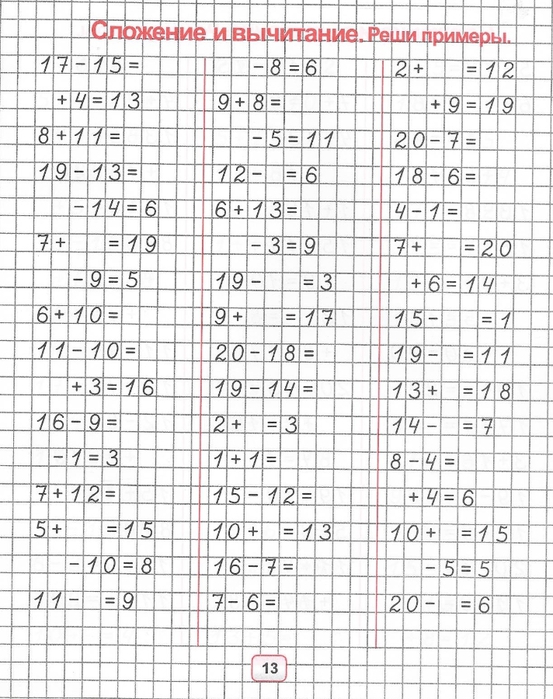 Сложение и вычитание. Реши примеры.
17-15=
+4=13
8+11=
19-13=
-14=6
7+ =19
-9=5
6+10=
11-10=
+3=16
16-9=
-1=3
7+12=
5+ =15
-10=8
11- =9
-8=6
9+8=
-5=11
12- =6
6+13=
-3=9
19- =3
9+ =17
20-18=
19-14=
2+ =3
1+1=
15-12=
10+ =13
16-7=
7-6=
2+ =12
+9=19
20-7=
18-6=
4-1=
7+ =20
+6=14
15- =1
19- =11
13+ =18
14- =7
8-4=
+4=6
10+ =15
-5=5
20- =6
13